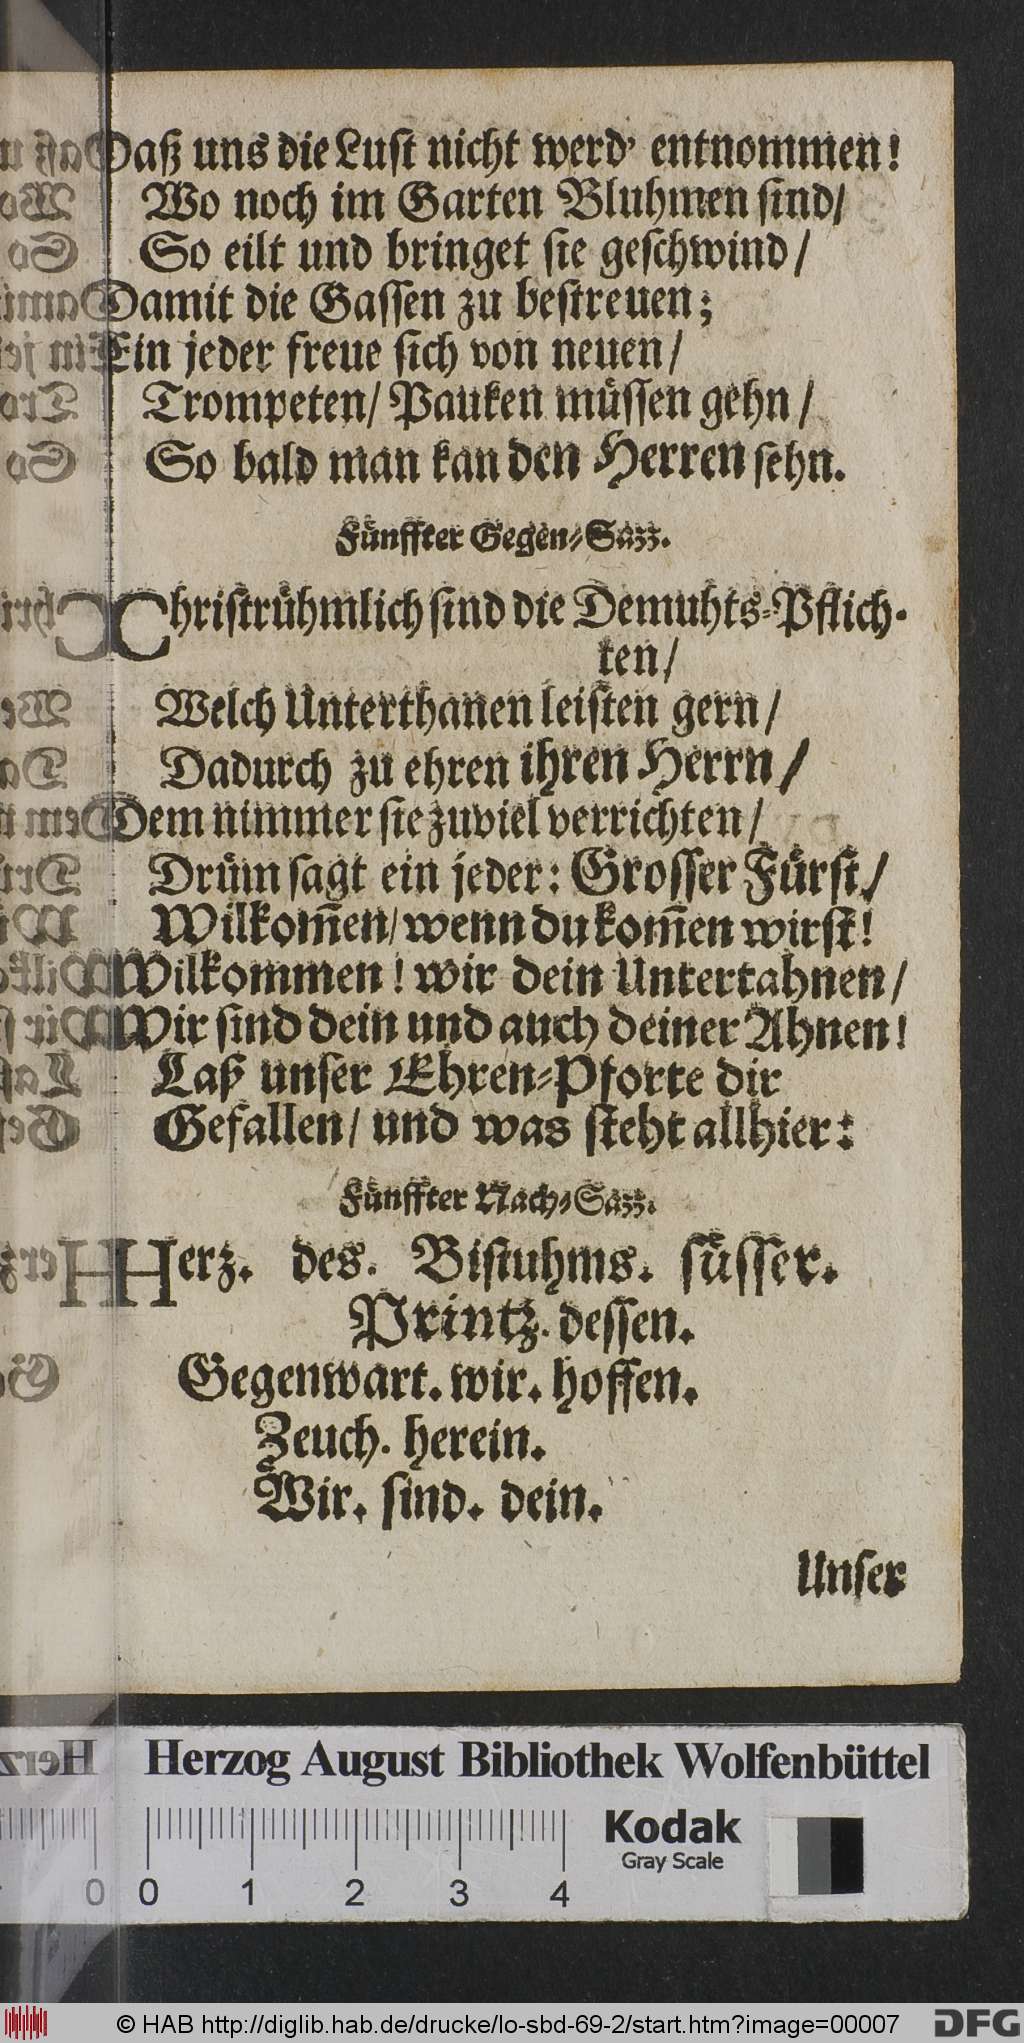 Daß uns die Lust nicht werd' entnommen!
Wo noch im Garten Bluhmen sind/
So eilt und bringet sie geschwind/
Damit die Gassen zu bestreuen;
Ein jeder freue sich von neuen/
Trompeten/ Pauken müssen gehn/
So bald man kan den Herren sehn.
Fünffter Gegen-Sazz.
Christrühmlich sind die Demuhts-Pflich-
ten/
Welch Unterthanen leisten gern/
Dadurch zu ehren ihren Herrn/
Dem nimmer sie zuviel verrichten/
Drüm sagt ein jeder: Grosser Fürst/
Wilkom̃en/ wenn du kom̃en wirst!
Wilkommen! wir dein Untertahnen/
Wir sind dein und auch deiner Ahnen!
Laß unser Ehren-Pforte dir
Gefallen/ und was steht allhier:
Fünffter Nach-Sazz.
Herz. des. Bistuhms. süsser.
Printz. dessen.
Gegenwart. wir. hoffen.
Zeuch. herein.
Wir. sind. dein.
Unser
Herzog August Bibliothek Wolfenbüttel
Kodak
Gray Scale
0 0 1 2 3 4
© HAB http://diglib.hab.de/drucke/lo-sbd-69-2/start.htm?image=00007
DFG